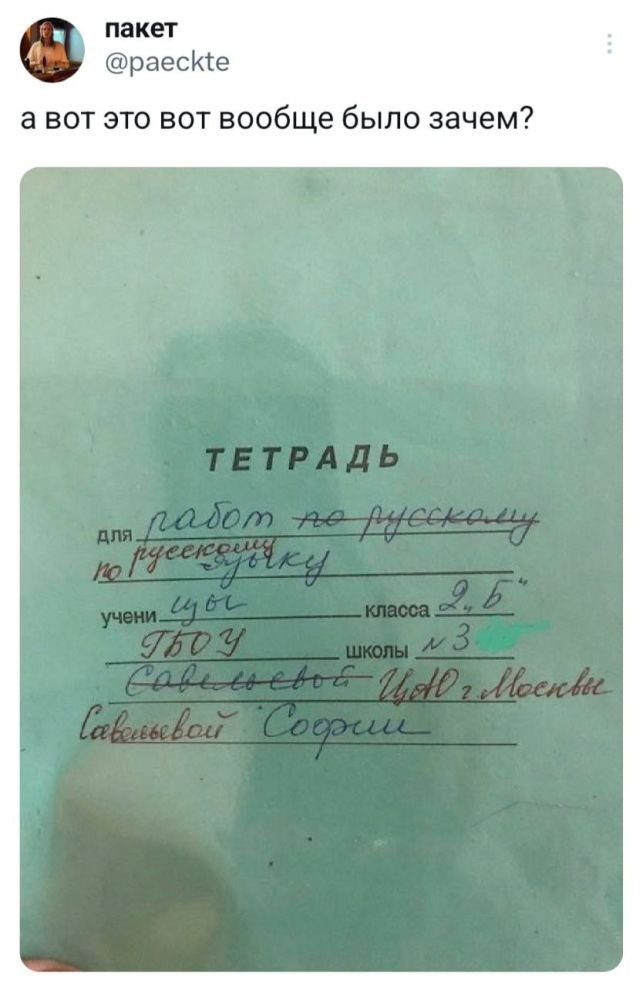 пакет
@paeckte
а вот это вот вообще было зачем?
ТЕТРАДЬ
для работ по русскому
по русскому языку
учени цы класса 2 „Б"
ГБОУ школы №3
Савельевой ЦАО г. Москвы
Савельевой Софии